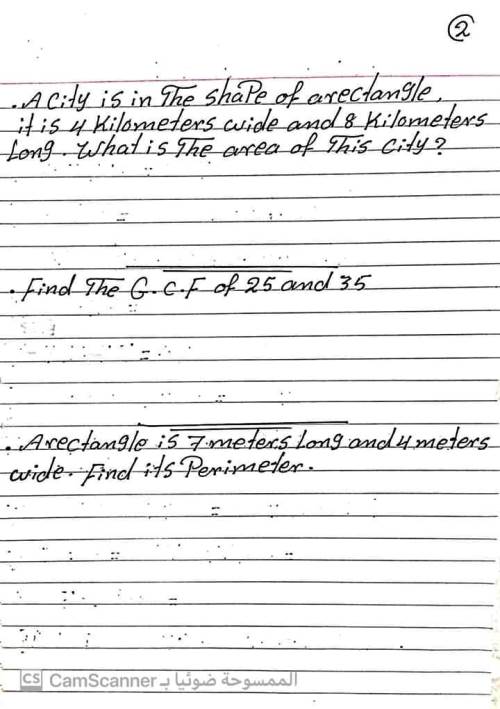 2
. A City is in The shape of arectangle,
it is 4 Kilometers wide and 8 Kilometers
Long. What is The area of This City?
. Find The G.C.F of 25 and 35
. Arectangle is 7 meters Long and 4 meters
wide. Find its Perimeter.
CS CamScanner الممسوحة ضوئيا بـ